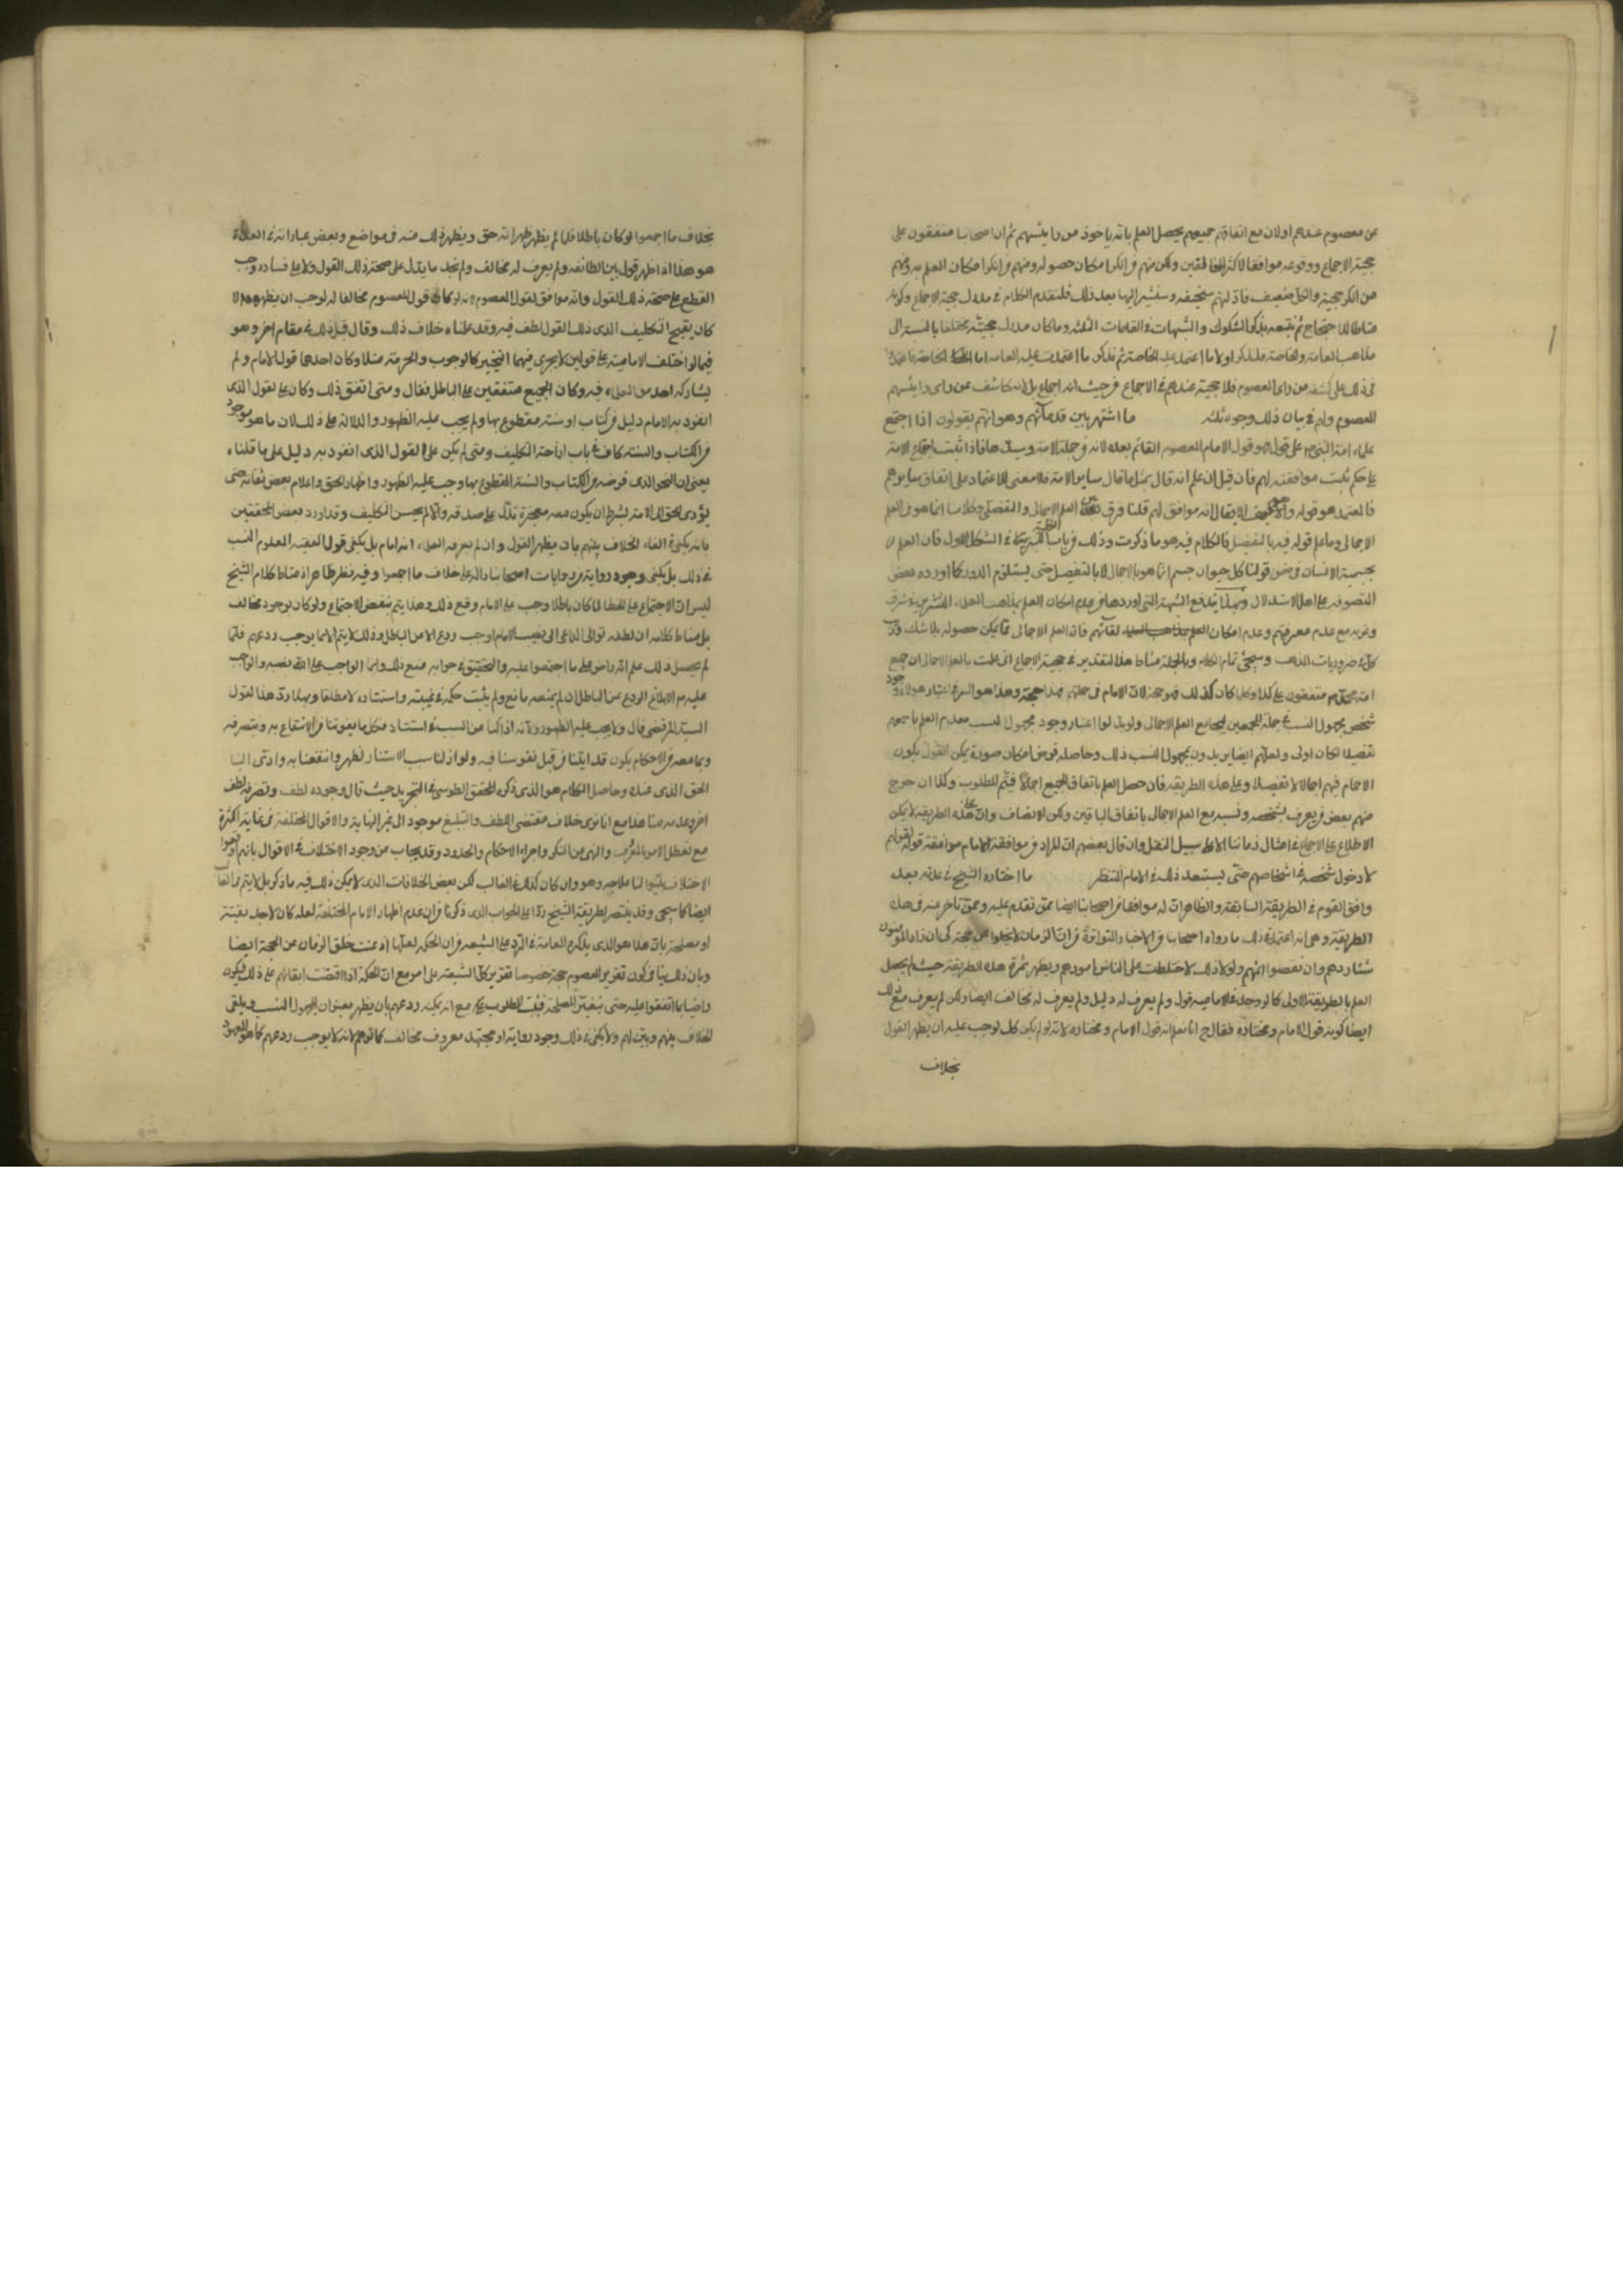 عن معصوم عندهم اولان مع اتفاقهم جميعهم يحصل العلم بانه ماخوذ من رايئسهم ثم ان اصحابنا متفقون على
حجية الاجماع ووقوعه موافقا لاكثر المخالفين ولكن منهم من انكر امكان حصوله ومنهم من انكر امكان العلم به ومنهم
من انكر حجيته والكل ضعيف فادلتهم سخيفة وسنشير اليها بعد ذلك فلنقدم الكلام في مدرك حجية الاجماع وكونه
مناطا للاحتجاج ثم نتبعه بذكر الشكوك والشبهات في المقامات الثلثة وماكان مدرك حجيته مختلفا بالنسبة الى
مذاهب العامة والخاصة فلنذكر اولا ما اعتمد عليه الخاصة ثم نذكر ما اعتمدت عليه العامة اما الخاصة فاعتمدوا
في ذلك على كشفه عن راى المعصوم فلا حجية عندهم في الاجماع من حيث انه اجماع بل لانه كاشف عن راى رايئسهم
المعصوم ولهم في بيان ذلك وجوه ثلثة ما اشتهر بين قدمائهم وهو انهم يقولون اذا اجتمع
علماء امة النبي ص على قول فهو قول الامام المعصوم القائم بعده لانه من جملة الامة وسيدها فاذا ثبت اجماع الامة
على حكم ثبت موافقته لهم فان قيل ان علم انه قال بمثل ما قال ساير الامة فلا معنى للاعتماد على اتفاق سايرهم
فالمعتمد هو قوله والا فكيف يقال انه موافق لهم قلنا فرق بين العلم الاجمالى والتفصيلى وكلامنا انما هو في العلم
الاجمالى وما علم قوله فيه بالتفصيل فالكلام فيه هو ما ذكرت وذلك من باب كلية الكبرى في الشكل الاول فان العلم
بجسمية الانسان في ضمن قولنا كل حيوان جسم انما هو بالاجمال لا بالتفصيل حتى يستلزم الدور كما اورده بعض
المتصوفة على اهل الاستدلال وبهذا يندفع الشبهة التى اوردها من عدم امكان العلم بمذاهب العلماء المنتشرين في شرق
وغربه مع عدم معرفتهم وعدم امكان لقائهم فان العلم الاجمالى مما يمكن حصوله بلا شك
كما في ضروريات المذهب وسيجئ تمام الكلام وبالجملة مناط هذا التقدير في حجية الاجماع انى علمت بالعلم الاجمالى ان جميع
امة محمد ص متفقون على كذا وكلما كان كذلك فهو حجة لان الامام في جملتهم وهذا هو السر في اعتبار هؤلاء وجود
شخص مجهول النسب في جملة المجمعين ليجامع العلم الاجمالى ولو بدلوا اعتبار وجود مجهول النسب بعدم العلم باجمعهم
تفصيلا لكان اولى ولعلهم ايضا يريدون بمجهول النسب ذلك وحاصله فرض امكان صورة يمكن القول بكون
الامام فيهم اجمالا لا تفصيلا وعلى هذه الطريقة فان حصل العلم باتفاق الجميع اجمالا فيتم المطلوب وكذا ان خرج
منهم بعض من يعرف بشخصه ونسبه مع العلم الاجمالى باتفاق الباقين ولكن الانصاف وان على هذه الطريقة لا يمكن
الاطلاع على الاجماع في امثال زماننا الا على سبيل النقل وان قال بعضهم ان المراد من موافقة الامام موافقة قوله لقولهم
لا دخول شخصه في اشخاصهم حتى يستبعد ذلك في الامام المنتظر ما اختاره الشيخ في عدته بعد
وافق القوم في الطريقة السابقة والظاهر ان له موافقا من اصحابنا ايضا ممن تقدم عليه وممن تاخر عنه في هذه
الطريقة وهى انه اعتمد في ذلك ما رواه اصحابنا من الاخبار المتواترة من ان الزمان لا يخلو من حجة كى ان زاد المؤمنون
شيئا ردهم وان نقصوا اتمه لهم ولولا ذلك لاختلطت على الناس امورهم ويظهر ثمرة هذه الطريقة حيث لم يحصل
العلم بالطريقة الاولى كما لو وجد في الامامية قول ولم يعرف له دليل ولم يعرف له مخالف ايضا ولكن لم يعرف مع ذلك
ايضا كونه قول الامام ومختاره فقال ح انا نعلم انه قول الامام ومختاره لانه لو لم يكن كك لوجب عليه ان يظهر القول
بخلاف
بخلاف ما اجمعوا لو كان باطلا فلما لم يظهر ظهر انه حق ويظهر ذلك منه في مواضع وبعض عباراته في العدة
هو هذا اذا ظهر قول بين الطائفة ولم يعرف له مخالف ولم نجد ما يدل على صحة ذلك القول ولا على فساده وجب
القطع على صحة ذلك القول وانه موافق لقول المعصوم لانه لو كان قول المعصوم مخالفا له لوجب ان يظهره والا
كان يقبح التكليف الذى ذلك القول لطف فيه وقد علمنا خلاف ذلك وقال قبل ذلك في مقام اخر وهو
فيما لو اختلف الامامية على قولين لا يجرى فيهما التخيير كالوجوب والحرمة مثلا وكان احدهما قول الامام ولم
يشاركه احد من العلماء فيه وكان الجميع متفقين على الباطل فقال ومتى اتفق ذلك وكان على القول الذى
انفرد به الامام دليل من كتاب او سنة مقطوع بها ولم يجب عليه الظهور والدلالة على ذلك لان ما هو موجود
من الكتاب والسنة كاف في باب ازاحة التكليف ومتى لم يكن على القول الذى انفرد به دليل على ما قلناه
يعنى ان النحو الذى فرضه من الكتاب والسنة المقطوع بها وجب عليه الظهور واظهار الحق واعلام بعض ثقاته حتى
يؤدى الحق الى الامة بشرط ان يكون معه معجزة تدل على صدقه والا لم يحسن التكليف وقد اورد بعض المحققين
بانه يكفى في القاء الخلاف بينهم بان يظهر القول وان لم يعرفه العلماء انه امام بل يكفى قول الفقيه المعلوم النسب
في ذلك بل يكفى وجود رواية من روايات اصحابنا دالة على خلاف ما اجمعوا وفيه نظر ظاهر اذ مناط كلام الشيخ
ليس ان الاجتماع على الخطا لما كان باطلا وجب على الامام رفع ذلك وهذا يتم بنقض الاجتماع ولو كان بوجود مخالف
بل مناط كلامه ان لطفه تعالى الداعى الى نصب الامام اوجب ردع الامة عن الباطل وذلك لا يتم الا بما يوجب ردعهم فلما
لم يحصل ذلك علم انه راض على ما اجتمعوا عليه والتحقيق في جوابه منع ذلك وانما الواجب على الله نصبه والواجب
عليه ع الابلاغ والردع عن الباطل ان لم يمنعه مانع ولم يثبت حكمة في غيبته واستتاره لا مطلقا وبهذا رد هذا القول
السيد المرتضى فقال ولا يجب عليه الظهور لانه اذا كنا نحن السبب في استتاره فكل ما يفوتنا من الانتفاع به وبتصرفه
وبما معه من الاحكام يكون قد اتينا من قبل نفوسنا فيه ولو ازلنا سبب الاستتار لظهر وانتفعنا به وادى الينا
الحق الذى عنده وحاصل الكلام هو الذى ذكره المحقق الطوسى في التجريد حيث قال وجوده لطف وتصرفه لطف
اخر وعدمه منا هذا مع انا نرى خلاف مقتضى اللطف والتبليغ موجودا الى غير النهاية والاقوال المختلفة في غاية الكثرة
مع تعطل الامر بالمعروف والنهى عن المنكر واجراء الاحكام والحدود وقد يجاب عن وجود الاختلاف في الاقوال بانهم اوقعوا
الاختلاف وبينوا لنا علاجه وهو وان كان كذلك في الغالب لكن بعض الخلافات الذى لا يمكن ذلك فيه ما ذكر بل لا يتم في الغالب
ايضا كما سيجئ وقد ينتصر لطريقة الشيخ ردا على الجواب الذى ذكرنا من ان عدم اظهار الامام المختلفة لعله كان لاجل تقية
او مصلحة بان هذا هو الذى يذكره العامة في الرد على الشيعة من ان الحكمة لعلها اذ عنت خلق الزمان عن الحجة ايضا
وبان ذلك ينافى كون تقرير المعصوم حجة خصوصا تقرير كل الشيعة على امر مع ان الحكمة اذا اقتضت ابقائهم على ذلك فيكون
راضيا بما اتفقوا عليه حتى يتغير المصلحة فثبت المطلوب مع انه يمكنه ردعهم بان يظهر بعنوان المجهول النسب ويلقى
الخلاف بينهم ويبين لهم ولا يكفى في ذلك وجود رواية او مجتهد معروف مخالف كما توهم لانه لا يوجب ردعهم كما هو المعهود